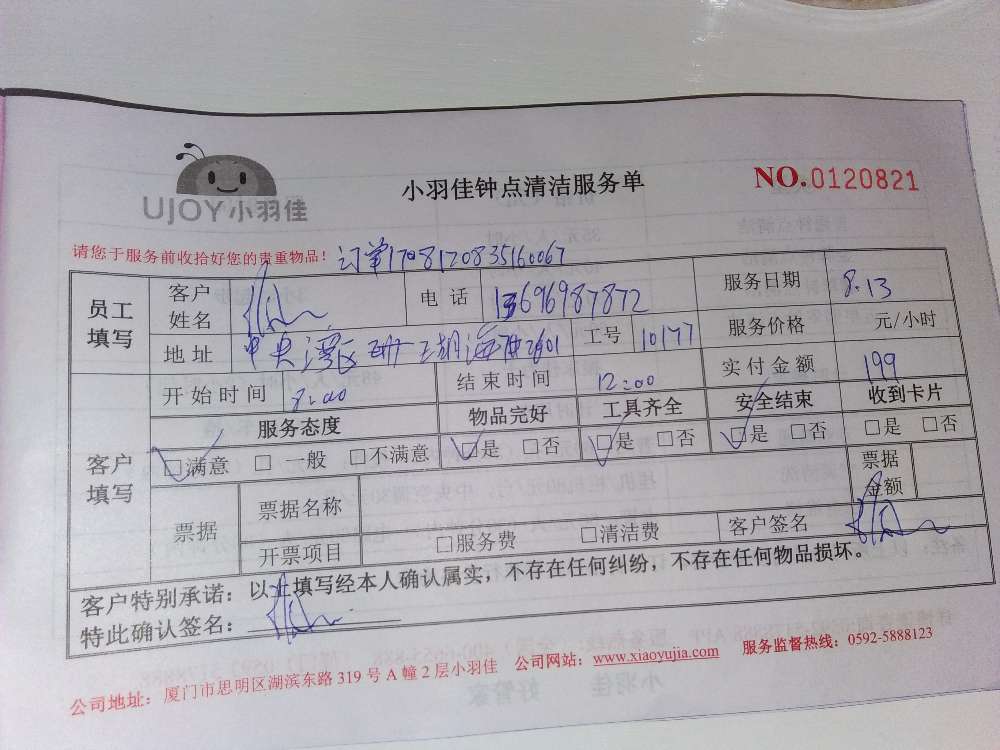 UJOY小羽佳
小羽佳钟点清洁服务单
NO.0120821
请您于服务前收拾好您的贵重物品! 订单1708120835160067
员工填写 客户姓名 电话 13696987872 服务日期 8.13
地址 中央湾区 珊瑚海 2601 工号 10177 服务价格 元/小时
客户填写 开始时间 8:00 结束时间 12:00 实付金额 199
服务态度 物品完好 工具齐全 安全结束 收到卡片
□满意 □一般 □不满意 □是 □否 □是 □否 □是 □否 □是 □否
票据 票据名称 票据金额
开票项目 □服务费 □清洁费 客户签名
客户特别承诺：以上填写经本人确认属实，不存在任何纠纷，不存在任何物品损坏。
特此确认签名：
公司地址：厦门市思明区湖滨东路 319 号 A 幢 2 层小羽佳 公司网站：www.xiaoyujia.com 服务监督热线：0592-5888123